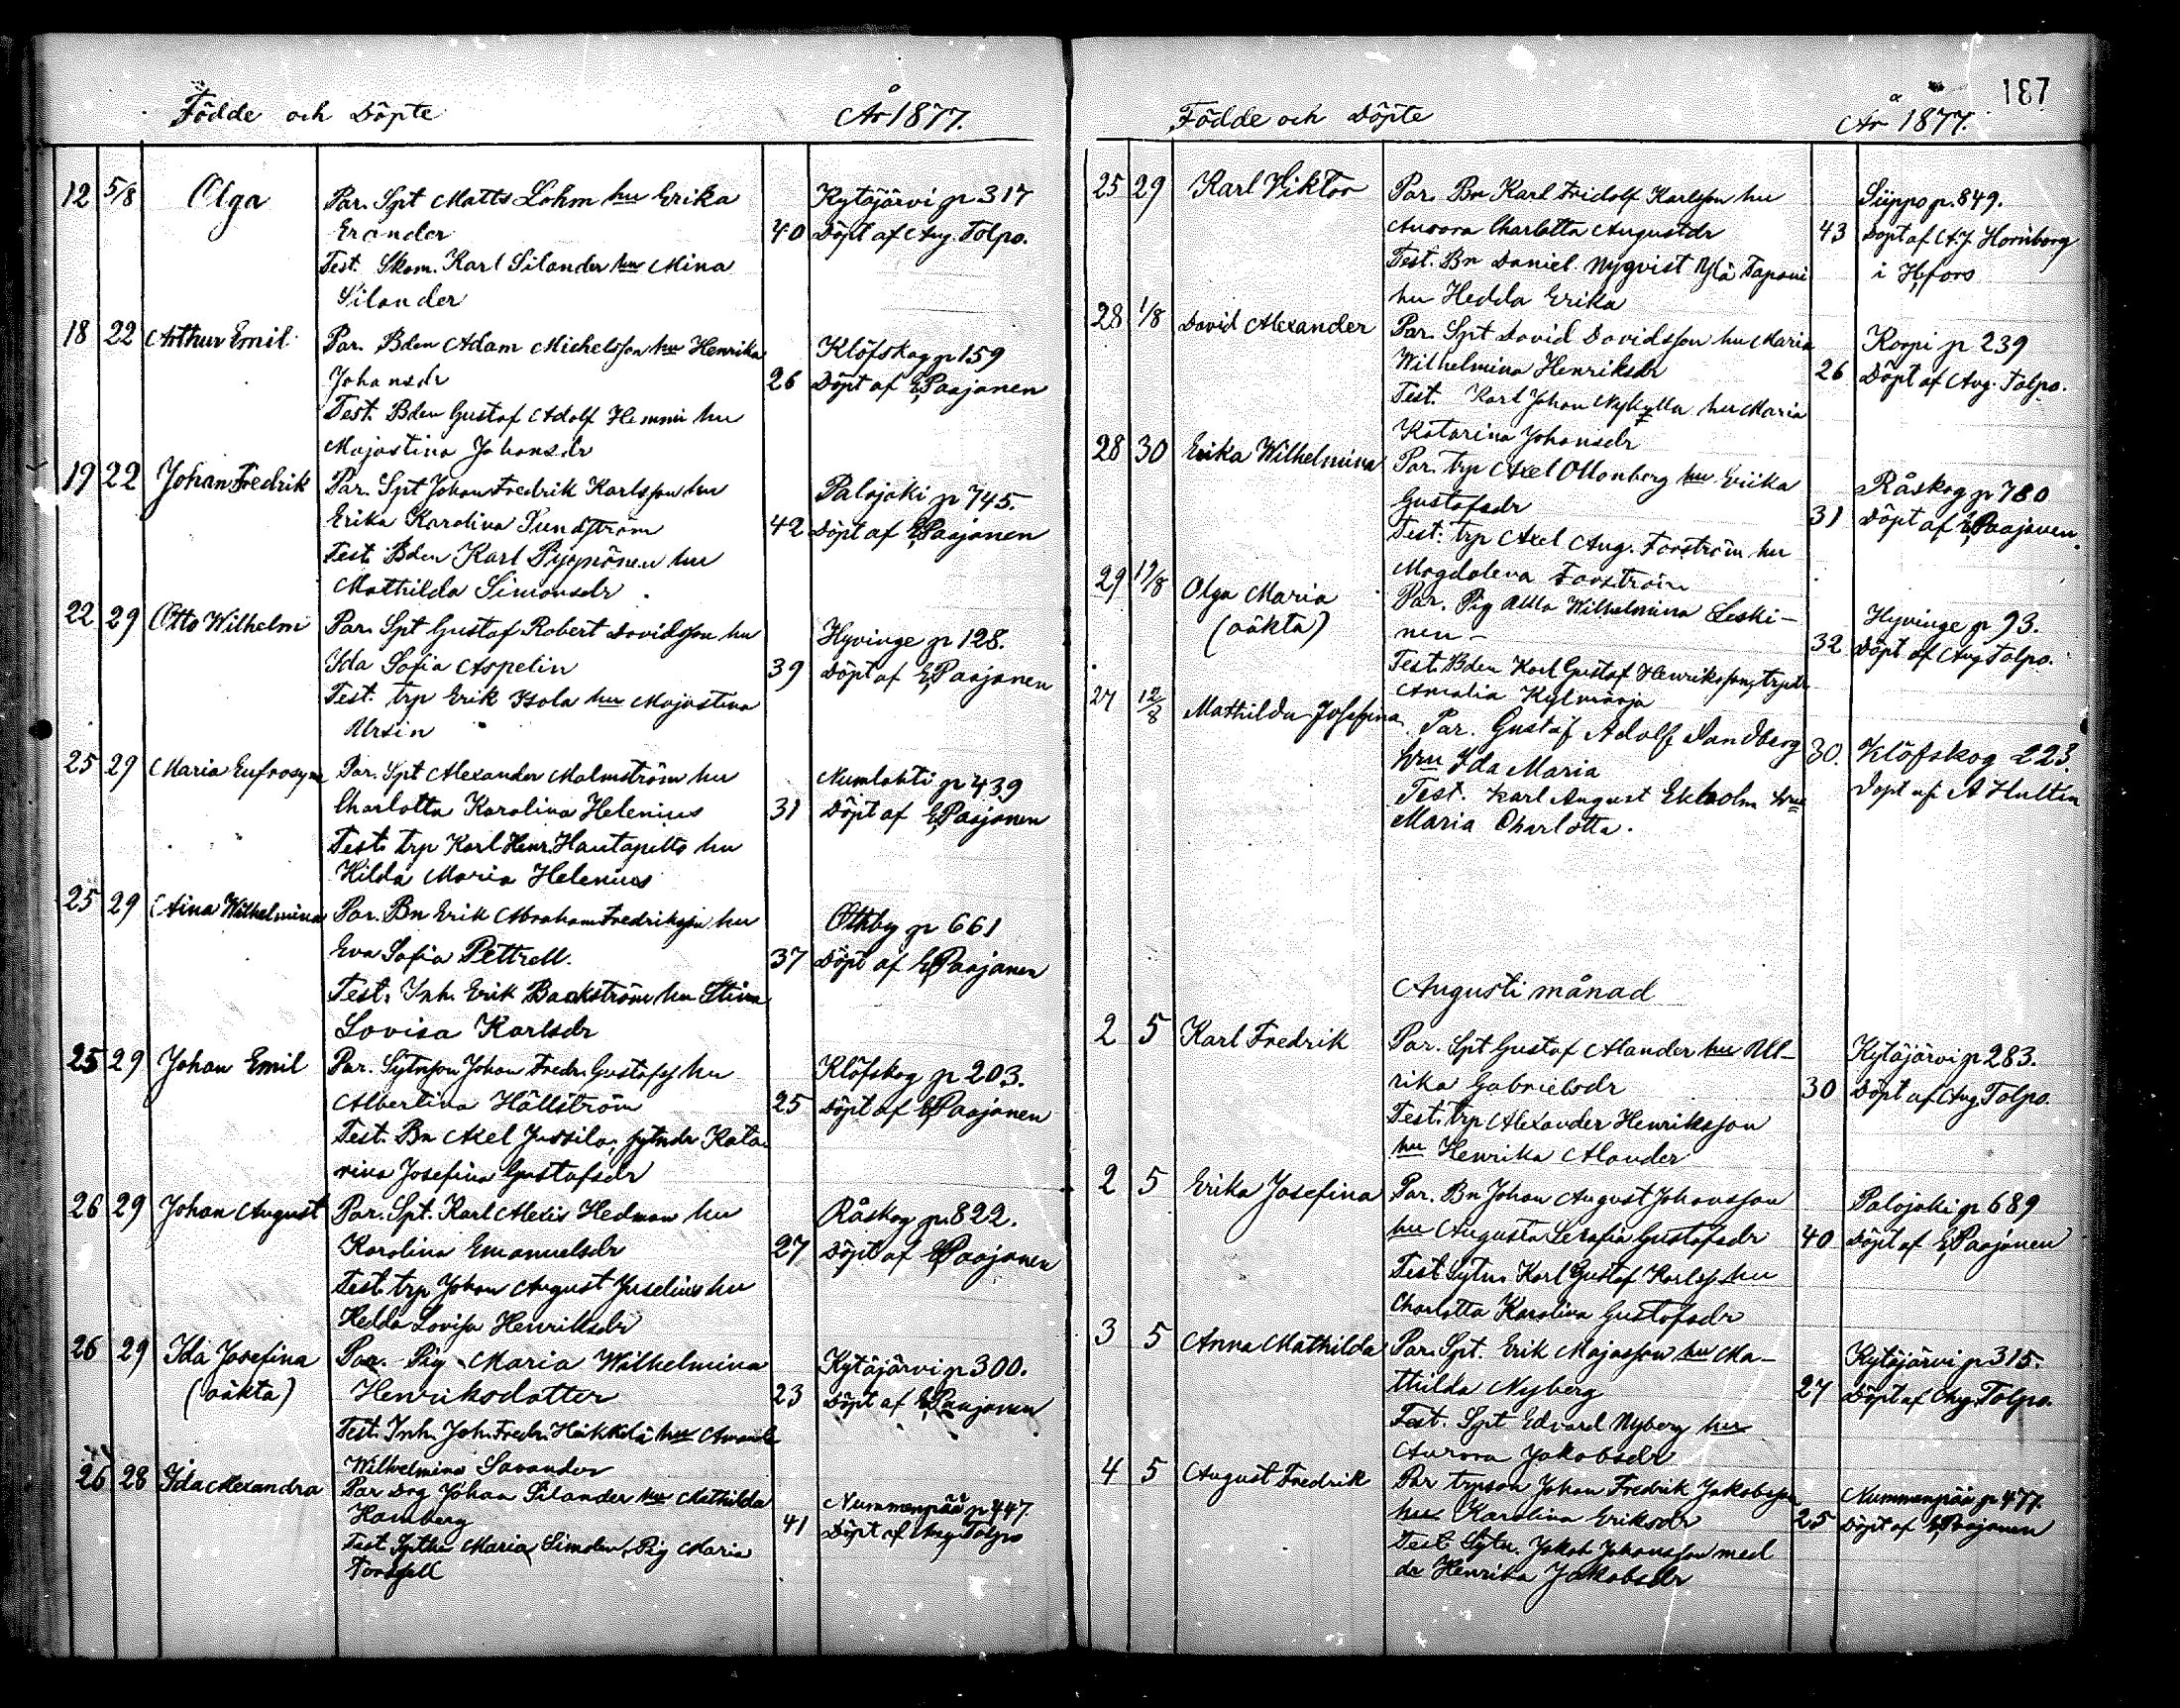 Födde och Döpte År 1877.
12 5/8 Olga Par. Spt Matts Lohm hu Erika Kytäjärvi p 317
Erander 40 Döpt af Aug. Tolpo.
Test. Skom. Karl Silander hu Mina
Silander
18 22 Arthur Emil Par. Bden Adam Michelsson hu Henrika Klöfskog p 159
Johansdr 26 Döpt af E Paajanen
Test. Bden Gustaf Adolf Hemmi hu
Majastina Johansdr
19 22 Johan Fredrik Par. Spt Johan Fredrik Karlsson hu Palojoki p 745.
Erika Karolina Sundström 42 Döpt af E Paajanen
Test. Bden Karl Pyypönen hu
Mathilda Simonsdr
22 29 Otto Wilhelm Par. Spt Gustaf Robert Davidsson hu Hyvinge p 128.
Ida Sofia Aspelin 39 Döpt af E Paajanen
Test. trp Erik Isola hu Majastina
Ursin
25 29 Maria Eufrosyne Par. Spt Alexander Malmström hu Numlahti p 439
Charlotta Karolina Helenius 31 Döpt af E Paajanen
Test. trp Karl Henr. Hautapelto hu
Hilda Maria Helenius
25 29 Aina Wilhelmina Par. Bn Erik Abraham Fredriksson hu Othby p 661
Eva Sofia Pettrell. 37 Döpt af E Paajanen
Test. Inh. Erik Backström hu Stina
Lovisa Karlsdr
25 29 Johan Emil Par. Sytnson Johan Fredr. Gustafss hu Klöfskog p 203.
Albertina Hällström 25 Döpt af E Paajanen
Test. Bn Axel Jussila, sytndr Kata-
rina Josefina Gustafsdr
26 29 Johan August Par. Spt. Karl Alexis Hedman hu Råskog p. 822.
Karolina Emanuelsdr 27 Döpt af E Paajanen
Test. trp Johan August Juselius hu
Hedda Lovisa Henriksdr
26 29 Ida Josefina Par. Pig Maria Wilhelmina Kytäjärvi p 300.
(oäkta) Henriksdotter 23 Döpt af E Paajanen
Test. Inh. Joh. Fredr. Heikkilä hu Amanda
Wilhelmina Savander
26 28 Ida Alexandra Par Drg Johan Silander hu Mathilda Nummenpää p 447.
Hamberg 41 Döpt af Aug Tolpo
Test. Maria Simolin, Pig Maria
Forssell
187
Födde och Döpte År 1877.
25 29 Karl Viktor Par. Bn Karl Fridolf Karlsson hu Siippo p. 849.
Aurora Charlotta Augustdr 43 Döpt af A.J. Hornborg
Test. Bn Daniel Nyqvist Ylä Tapani i Hfors
hu Hedda Erika
28 1/8 David Alexander Par. Spt David Davidsson hu Maria Korpi p 239
Wilhelmina Henriksdr 26 Döpt af Aug. Tolpo.
Test. Karl Johan Nykulla hu Maria
Katarina Johansdr
28 30 Erika Wilhelmina Par. trp Axel Ollonberg hu Eriika Råskog p 780
Gustafsdr 31 Döpt af E Paajanen.
Test. trp Axel Aug. Forström hu
Magdalena Forström
29 19/8 Olga Maria Par. Pig Ulla Wilhelmina Leski- Hyvinge p 93.
(oäkta) nen - 32 Döpt af Aug Tolpo.
Test. Bden Karl Gustaf Henriksson, trpdr
Amalia Kylmäoja
27 12/8 Mathilda Josefina Par. Gustaf Adolf Sandberg 30. Klöfskog 223.
hru Ida Maria Döpt af A Hultin
Test. Karl August Ekholm hru
Maria Charlotta.
Augusti månad
2 5 Karl Fredrik Par. Spt Gustaf Alander hu Ull- Kytäjärvi p 283.
rika Gabrielsdr 30 Döpt af Aug Tolpo.
Test. trp Alexander Henriksson
hu Henrika Alander
2 5 Erika Josefina Par. Bn Johan August Johansson Palojoki p 689
hu Augusta Serafia Gustafsdr 40 Döpt af E Paajanen
Test. Sytn. Karl Gustaf Karlss. hu
Charlotta Karolina Gustafsdr
3 5 Anna Mathilda Par. Spt. Erik Majasson hu Ma- Kytäjärvi p 315.
thilda Nyberg 27 Döpt af Aug Tolpo.
Test. Spt Edvard Nyberg hu
Aurora Jakobsdr
4 5 August Fredrik Par trpson Johan Fredrik Jakobsson Nummenpää p 477.
hu Karolina Eriksdr 25 Döpt af E Paajanen
Test. Sytn. Jakob Johansson med
dr Henrika Jakobsdr